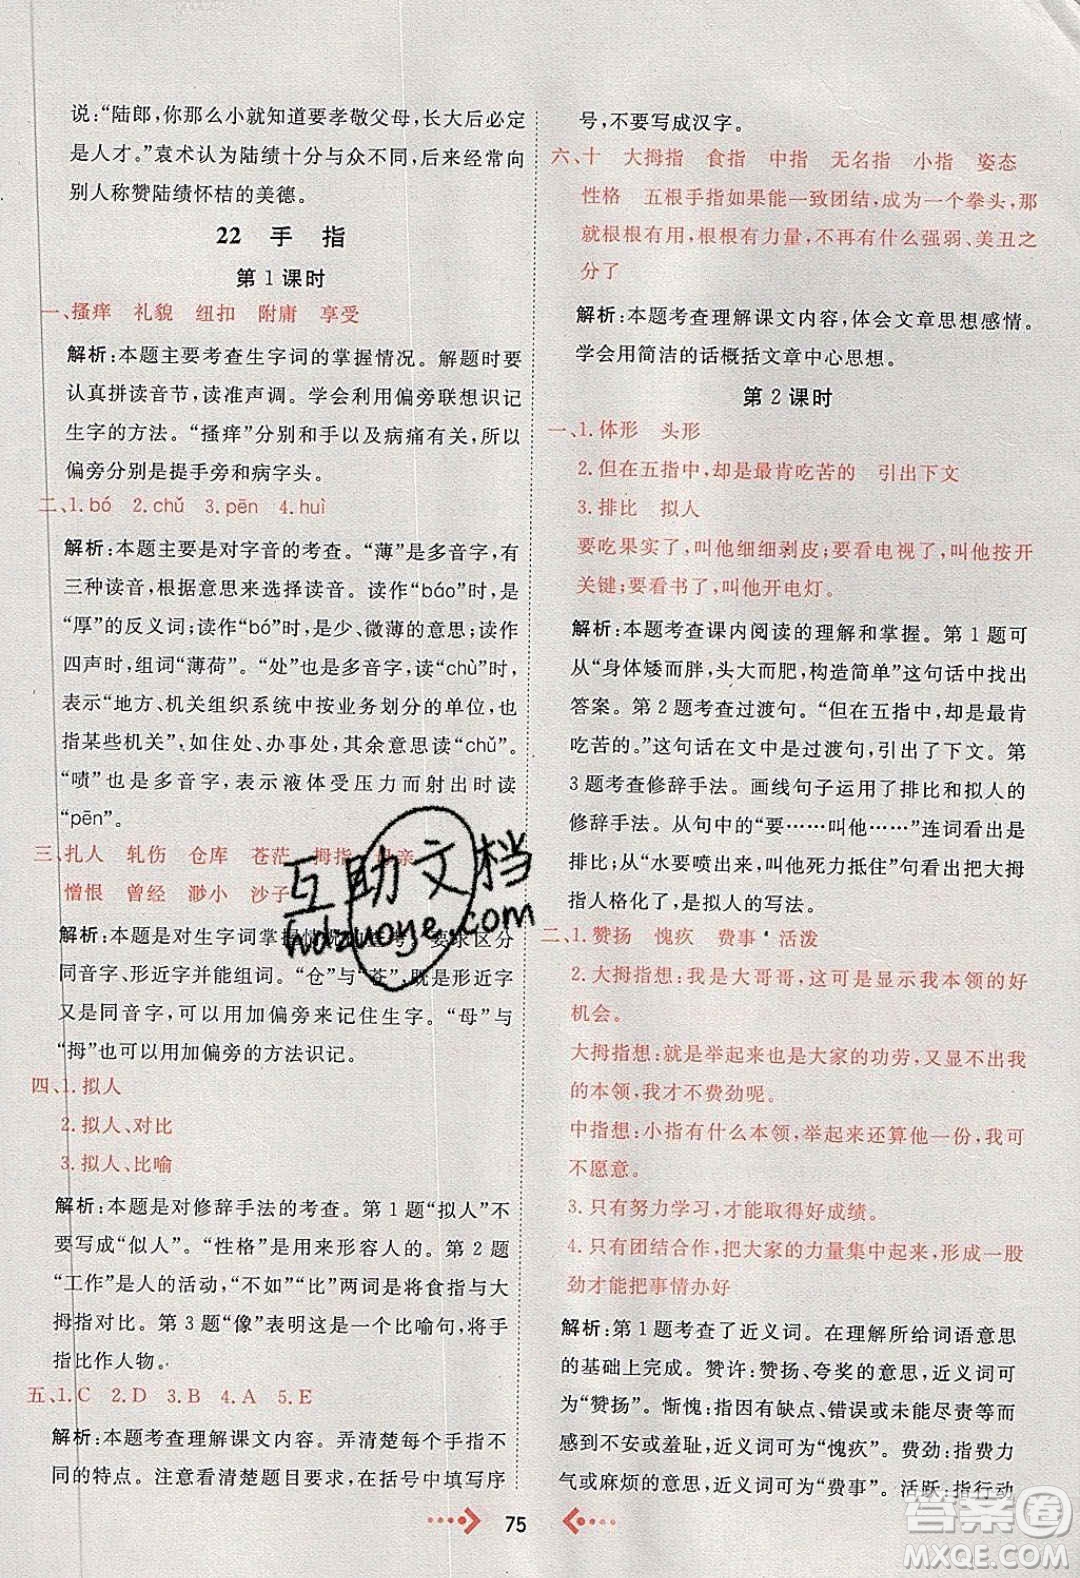 说:“陆郎,你那么小就知道要孝敬父母,长大后必定
是人才。”袁术认为陆绩十分与众不同,后来经常向
别人称赞陆绩怀桔的美德。
22 手 指
第1课时
一、搔痒 礼貌 纽扣 附庸 享受
解析:本题主要考查生字词的掌握情况。解题时要
认真拼读音节,读准声调。学会利用偏旁联想识记
生字的方法。“搔痒”分别和手以及病痛有关,所以
偏旁分别是提手旁和病字头。
二、1.bó 2.chǔ 3.pēn 4.huì
解析:本题主要是对字音的考查。“薄”是多音字,有
三种读音,根据意思来选择读音。读作“báo”时,是
“厚”的反义词;读作“bó”时,是少、微薄的意思;读作
四声时,组词“薄荷”。“处”也是多音字,读“chù”时,
表示“地方、机关组织系统中按业务划分的单位,也
指某些机关”,如住处、办事处,其余意思读“chǔ”。
“喷”也是多音字,表示液体受压力而射出时读
“pēn”。
三、扎人 轧伤 仓库 苍茫 拇指 母亲
憎恨 曾经 渺小 沙子
解析:本题是对生字词掌握情况的考 要求区分
同音字、形近字并能组词。“仓”与“苍”,既是形近字
又是同音字,可以用加偏旁来记住生字。“母”与
“拇”也可以用加偏旁的方法识记。
四、1.拟人
2.拟人、对比
3.拟人、比喻
解析:本题是对修辞手法的考查。第1题“拟人”不
要写成“似人”。“性格”是用来形容人的。第2题
“工作”是人的活动,“不如”“比”两词是将食指与大
拇指对比。第3题“像”表明这是一个比喻句,将手
指比作人物。
五、1.C 2.D 3.B 4.A 5.E
解析:本题考查理解课文内容。弄清楚每个手指不
同的特点。注意看清楚题目要求,在括号中填写序
号,不要写成汉字。
六、十 大拇指 食指 中指 无名指 小指 姿态
性格 五根手指如果能一致团结,成为一个拳头,那
就根根有用,根根有力量,不再有什么强弱、美丑之
分了
解析:本题考查理解课文内容,体会文章思想感情。
学会用简洁的话概括文章中心思想。
第2课时
一、1.体形 头形
2.但在五指中,却是最肯吃苦的 引出下文
3.排比 拟人
要吃果实了,叫他细细剥皮;要看电视了,叫他按开
关键;要看书了,叫他开电灯。
解析:本题考查课内阅读的理解和掌握。第1题可
从“身体矮而胖,头大而肥,构造简单”这句话中找出
答案。第2题考查过渡句。“但在五指中,却是最肯
吃苦的。”这句话在文中是过渡句,引出了下文。第
3题考查修辞手法。画线句子运用了排比和拟人的
修辞手法。从句中的“要……叫他……”连词看出是
排比;从“水要喷出来,叫他死力抵住”句看出把大拇
指人格化了,是拟人的写法。
二、1.赞扬 愧疚 费事 活泼
2.大拇指想:我是大哥哥,这可是显示我本领的好
机会。
大拇指想:就是举起来也是大家的功劳,又显示不出我
的本领,我才不费劲呢。
中指想:小指有什么本领,举起来还算他一份,我可
不愿意。
3.只有努力学习,才能取得好成绩。
4.只有团结合作,把大家的力量集中起来,形成一股
劲才能把事情办好
解析:第1题考查了近义词。在理解所给词语意思
的基础上完成。赞许:赞扬、夸奖的意思,近义词可
填“赞扬”。惭愧:指因有缺点、错误或未能尽责等而
感到不安或羞耻,近义词可为“愧疚”。费劲:指费力
气或麻烦的意思,近义词可填“费事”。活跃:指行动
75
互助文档
hdzuoye.com
答案圈
MXQE.COM